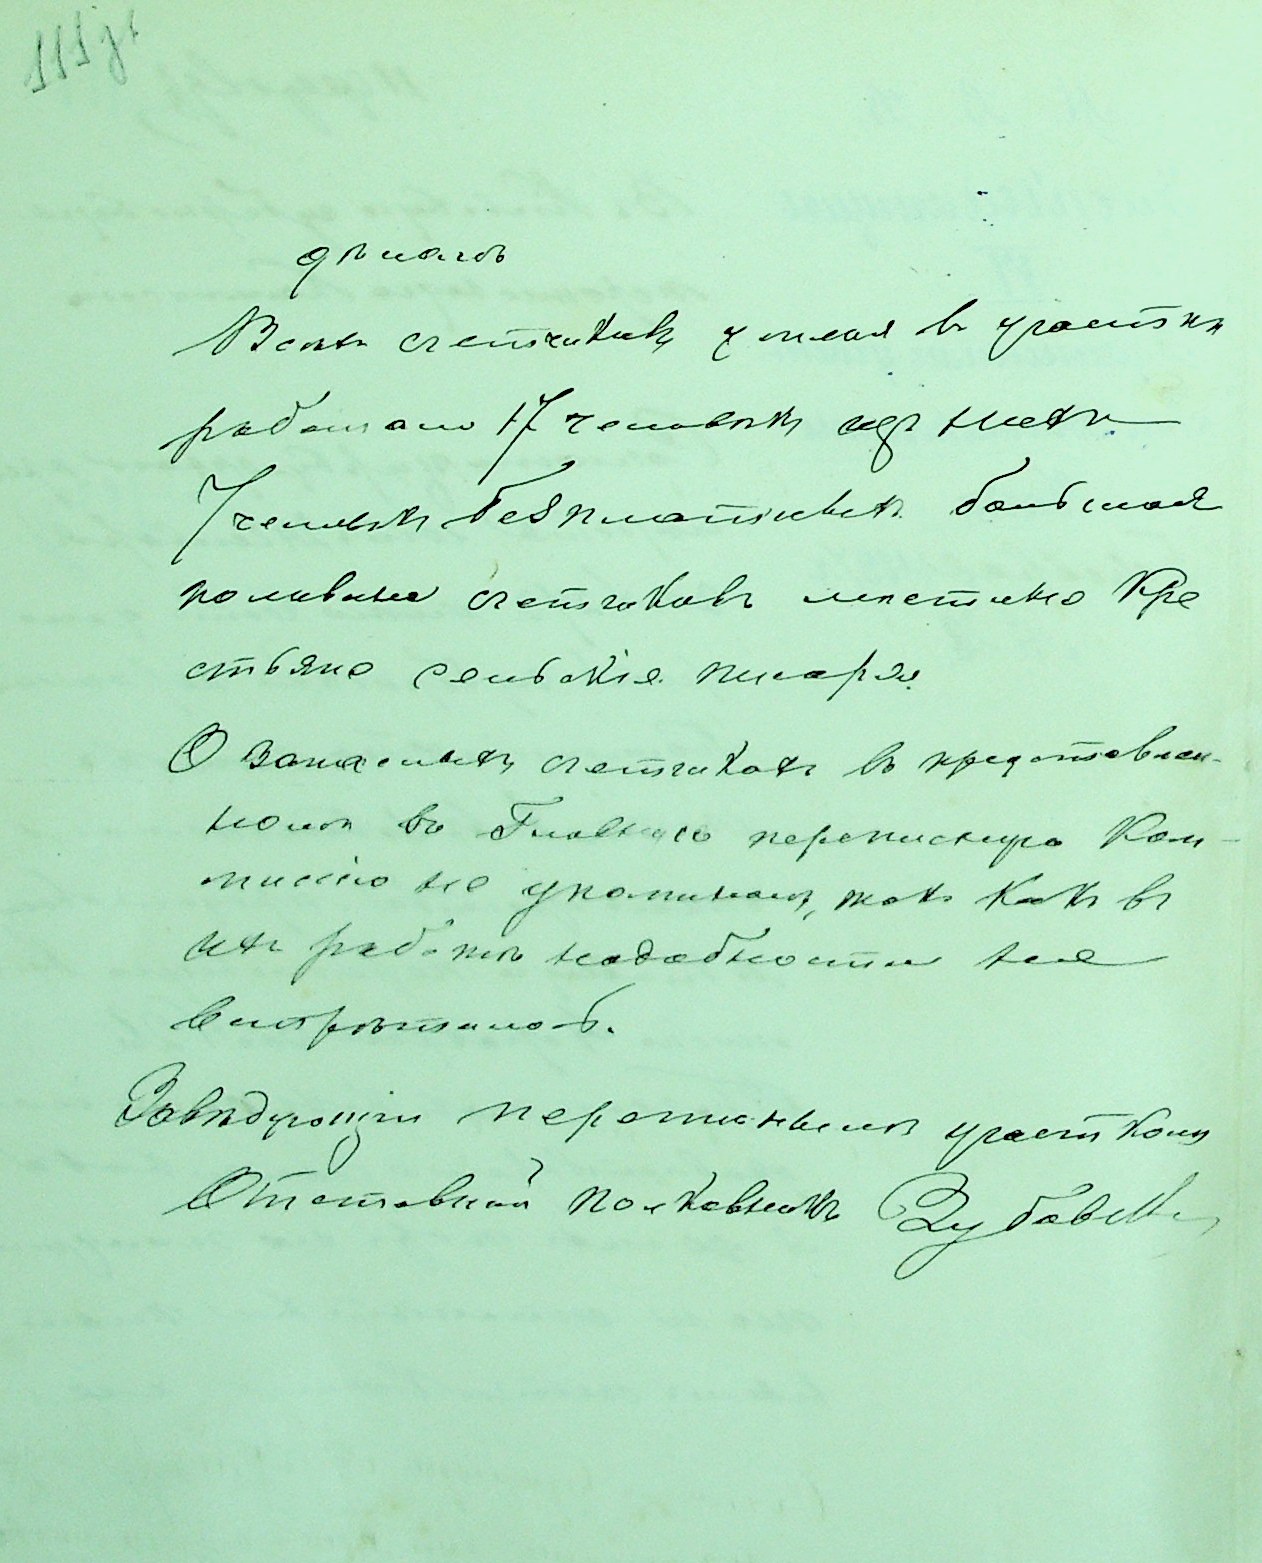 дѣлаго
Всѣхъ счетчиковъ у меня въ участкѣ
работало 17 человѣкъ изъ нихъ
7 человѣкъ безплатныхъ большая
половина счетчиковъ мѣстные Кре
стьяне сельскіе писаря.
О запасныхъ счетчикахъ въ представлен-
номъ въ Главную переписную Ком-
миссію не упоминалъ, такъ какъ въ
ихъ работѣ надобности не
встрѣтилось.
Завѣдующій переписнымъ участкомъ
Отставной полковникъ